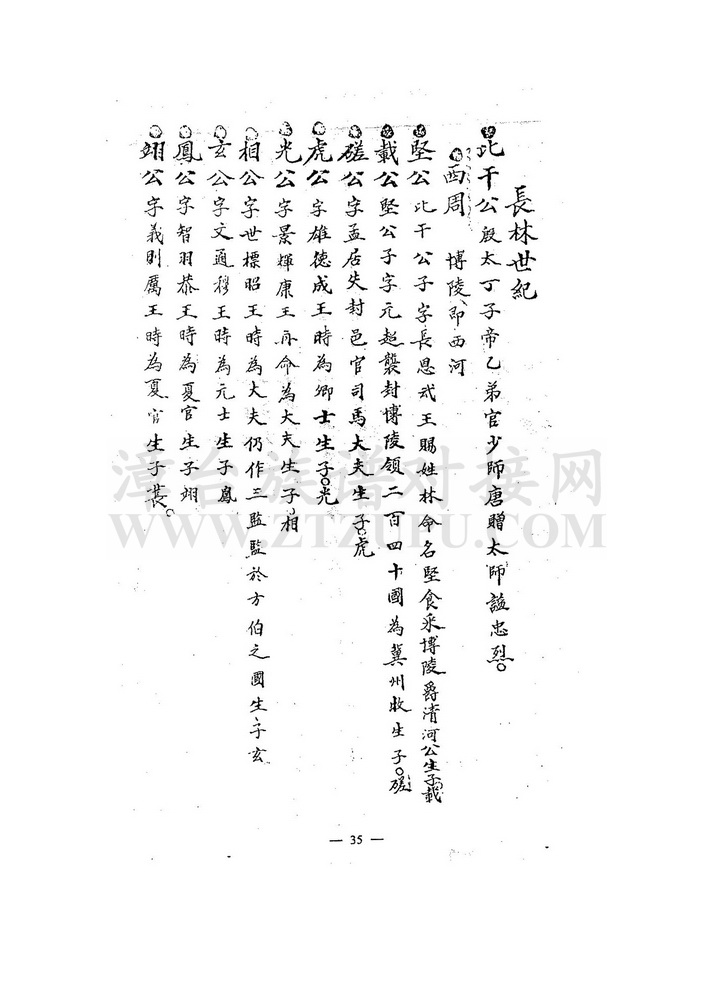 長林世紀
比干公殷太丁子帝乙弟官少師唐贈太師諡忠烈。
西周 博陵即西河
堅公比干公子字長思武王賜姓林命名堅食采博陵爵清河公生子載
載公堅公子字元超襲封博陵領二百四十國為冀州牧生子。磋
磋公字孟居失封邑官司馬大夫生子。虎
虎公字雄德成王時為卿士生子。光
光公字景輝康王命為大夫生子。相
相公字世標昭王時為大夫仍作三監監於方伯之國生子玄
玄公字文通穆王時為元士生子鳳
鳳公字智羽恭王時為夏官生子翊
翊公字義則厲王時為夏官生子萇。
漳台族谱对接网
WWW.ZTZUPU.COM
— 35 —